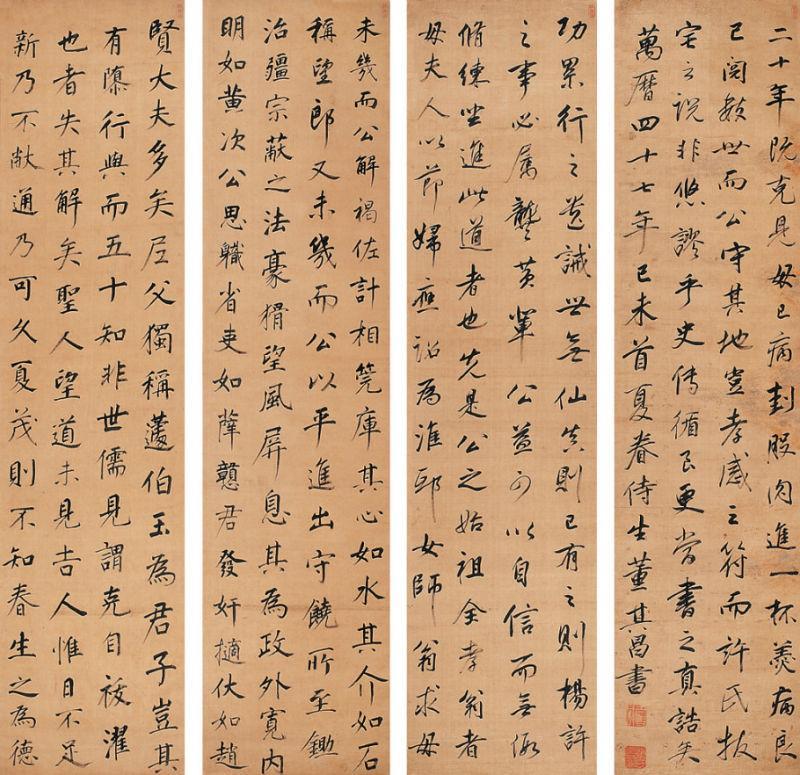 賢大夫多矣尼父獨稱蘧伯玉為君子豈其
有隳行與而五十知非世儒見謂克自祓濯
也者失其解矣聖人望道未見吉人惟日不足
新乃不敝通乃可久夏茂則不知春生之為德
未幾而公解褐佐計相筦庫其心如水其介如石
稱望郎又未幾而公以平進出守饒所至鋤
治疆宗蔽之法豪猾望風屏息其為政外寬內
明如黃次公思職省吏如薛贛君發奸擿伏如趙
功累行之筮誠世無仙真則已有之則楊許
之事必屬龔黃輩公益可以自信而無假
脩練坐進此道者也先是公之始祖全孝翁者
母夫人以節婦應詔為淮邸女師翁求母
二十年既克見母已病刲股肉進一杯羹病良
已閱數世而公守其地豈孝感之符而許氏拔
宅之說非悠謬乎史傳循良更當書之真誥矣
萬曆四十七年己未首夏眷侍生董其昌書